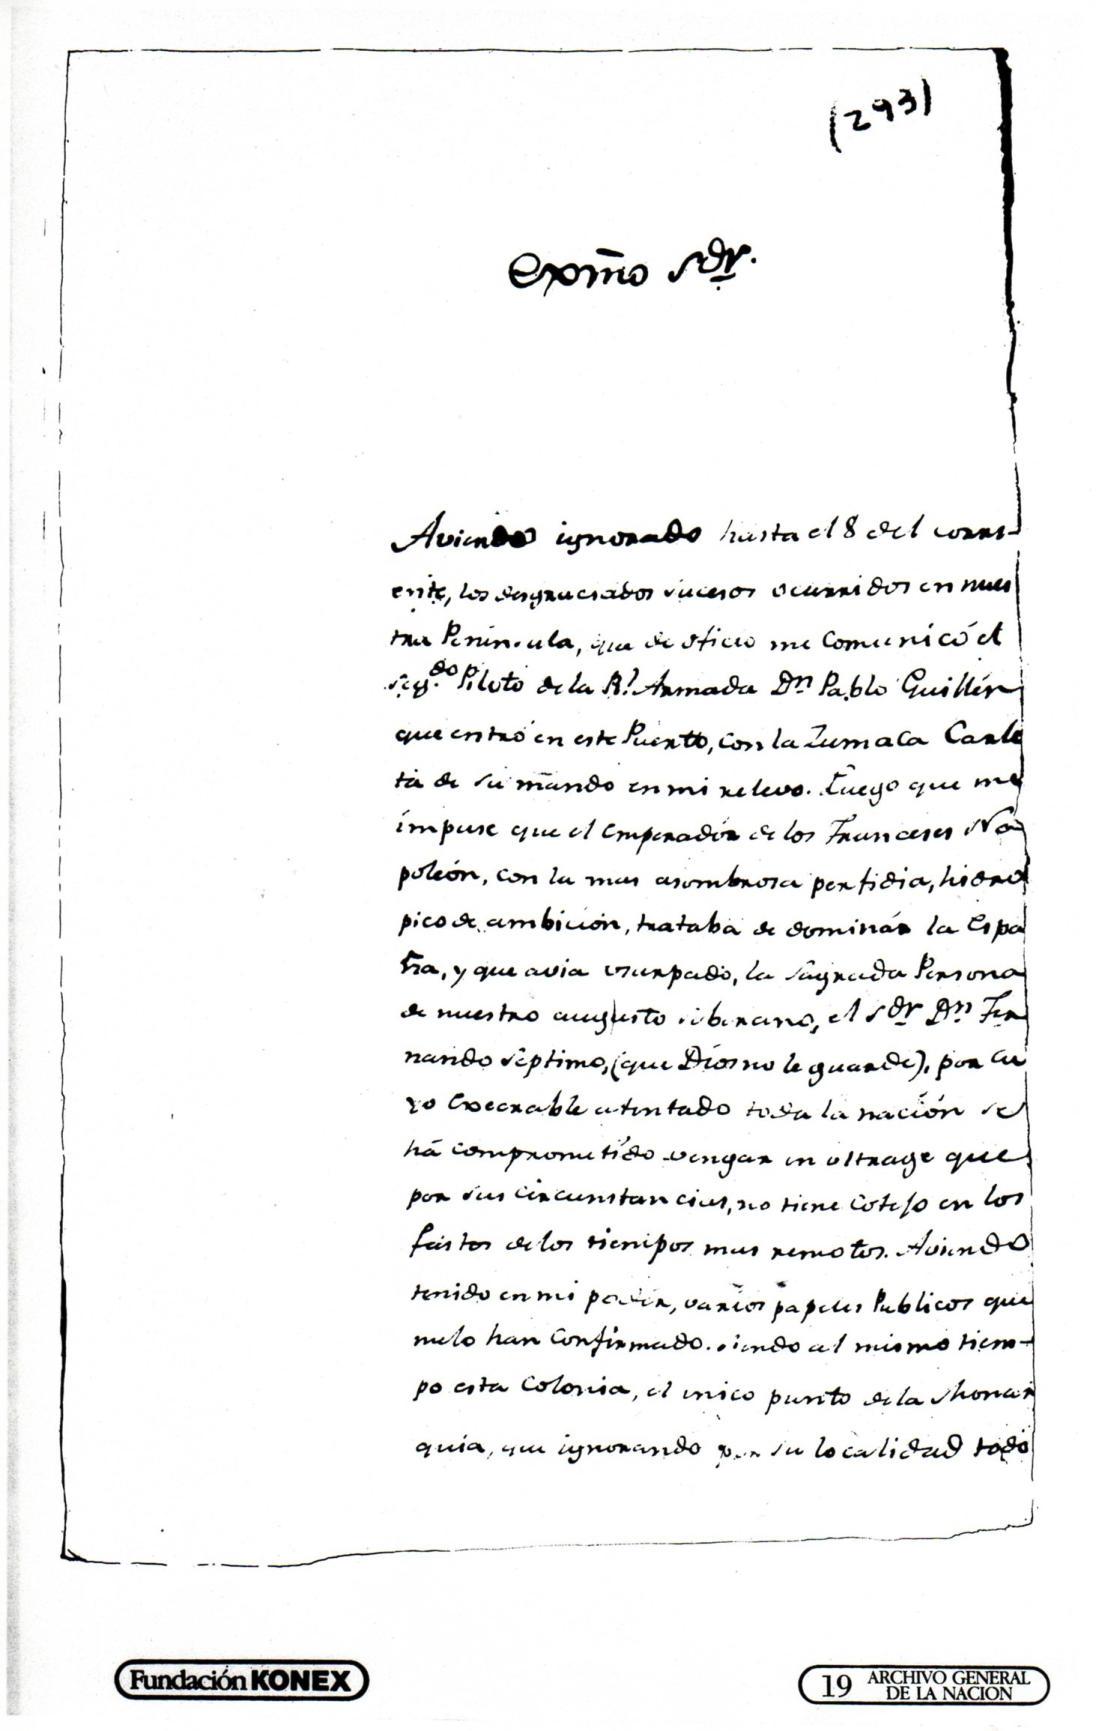 (293)
Exm̃o Sor.
Aviendo ignorado hasta el 8 del corri-
ente, los desgraciados sucesos ocurridos en nues
tra Peninsula, que de oficio me Comunicó el
Seg.do Piloto de la Rl Armada Dn Pablo Guillén
que entró en este Puerto, con la Zumaca Carlo
ta de su mando en mi relevo. Luego que me
impuse que el Emperadór de los Franceses Na
poleón, con la mas asombrosa perfidia, hidro
pico de ambición, trataba de dominár la Espa
ña, y que avia usurpado, la Sagrada Persona
de nuestro augusto soberano, el Sor Dn Fer
nando Séptimo, (que Dios no le guarde), por cu
yo execrable atentado toda la nación se
há comprometído vengar un ultrage que
por sus circunstancias, no tiene Cotejo en los
fastos de los tiempos mas remotos. Aviendo
tenido en mi poder, varios papeles Publicos que
melo han Confirmado. siendo al mismo tiem-
po esta Colonia, el unico punto de la Monar
quia, que ignorando por su localidad todo
Fundación KONEX
19 ARCHIVO GENERAL
DE LA NACION